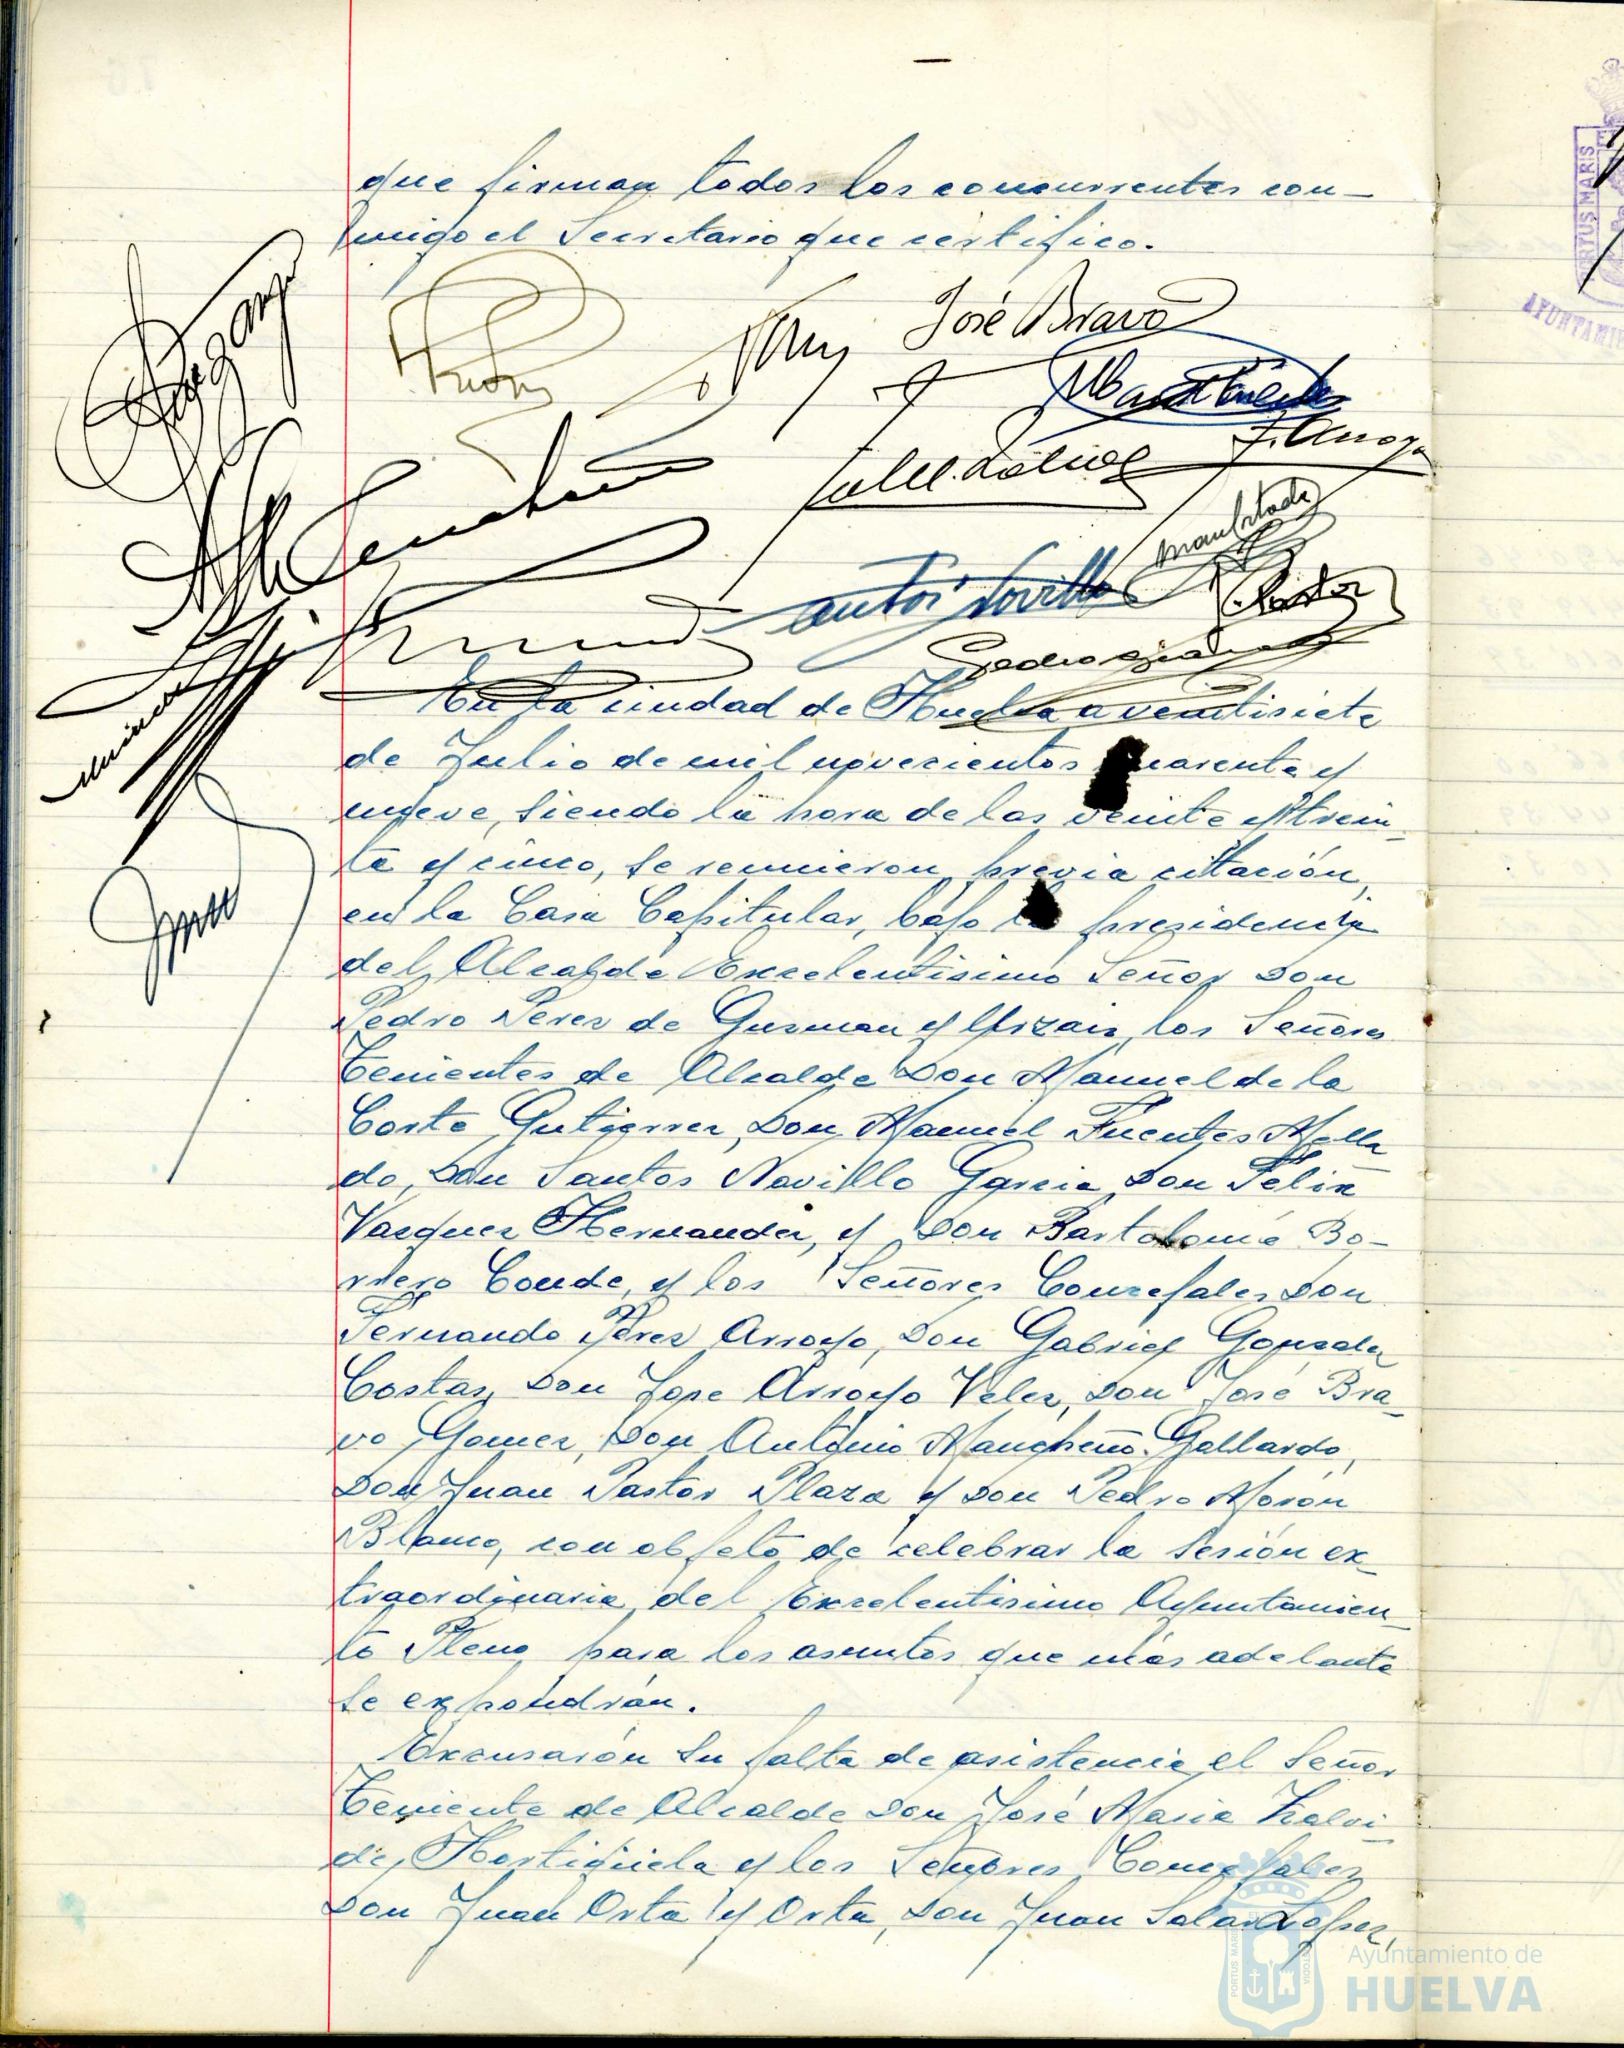 que firman todos los concurrentes con-
migo el Secretario que certifico.
José Bravo
F. Arroyo
J. Pastor
En la ciudad de Huelva a veintisiete
de Julio de mil novecientos cuarenta y
nueve, siendo la hora de las veinte y trein-
ta y cinco, se reunieron previa citación,
en la Casa Capitular, bajo la presidencia
del Alcalde Excelentisimo Señor Don
Pedro Perez de Guzman y Urzaiz, los Señores
Tenientes de Alcalde Don Manuel de la
Corte Gutierrez, Don Manuel Fuentes Mella
do, Don Santos Novillo Garcia, Don Felix
Vazquez Hernandez, y Don Bartolomé Bo-
rrero Conde, y los Señores Concejales Don
Fernando Pérez Arroyo, Don Gabriel Gonzalez
Costas, Don Jose Arroyo Velez, Don José Bra-
vo Gomez, Don Antonio Mancheño Gallardo,
Don Juan Pastor Plaza y Don Pedro Morón
Blanco, con objeto de celebrar la Sesión ex-
traordinaria del Excelentisimo Ayuntamien-
to Pleno para los asuntos que más adelante
se expondrán.
Excusarón su falta de asistencia el Señor
Teniente de Alcalde Don José Maria Zalvi-
de, Hortigüela y los Señores Concejales
Don Juan Orta y Orta, Don Juan Salas Lopez,
PORTUS MARIS
AYUNTAMIE
Ayuntamiento de
HUELVA